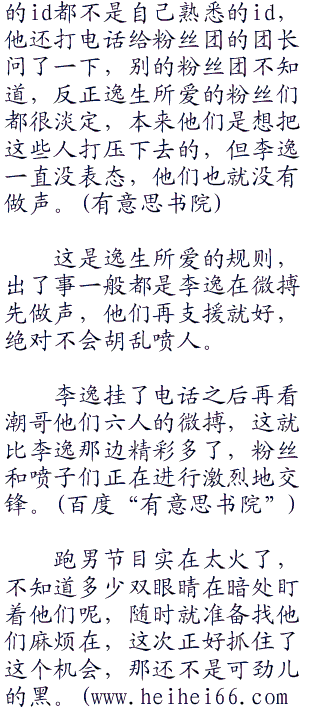 的id都不是自己熟悉的id，
他还打电话给粉丝团的团长
问了一下，别的粉丝团不知
道，反正逸生所爱的粉丝们
都很淡定，本来他们是想把
这些人打压下去的，但李逸
一直没表态，他们也就没有
做声。(有意思书院)
这是逸生所爱的规则，
出了事一般都是李逸在微搏
先做声，他们再支援就好，
绝对不会胡乱喷人。
李逸挂了电话之后再看
潮哥他们六人的微搏，这就
比李逸那边精彩多了，粉丝
和喷子们正在进行激烈地交
锋。(百度“有意思书院”)
跑男节目实在太火了，
不知道多少双眼睛在暗处盯
着他们呢，随时就准备找他
们麻烦在，这次正好抓住了
这个机会，那还不是可劲儿
的黑。(www.heihei66.com